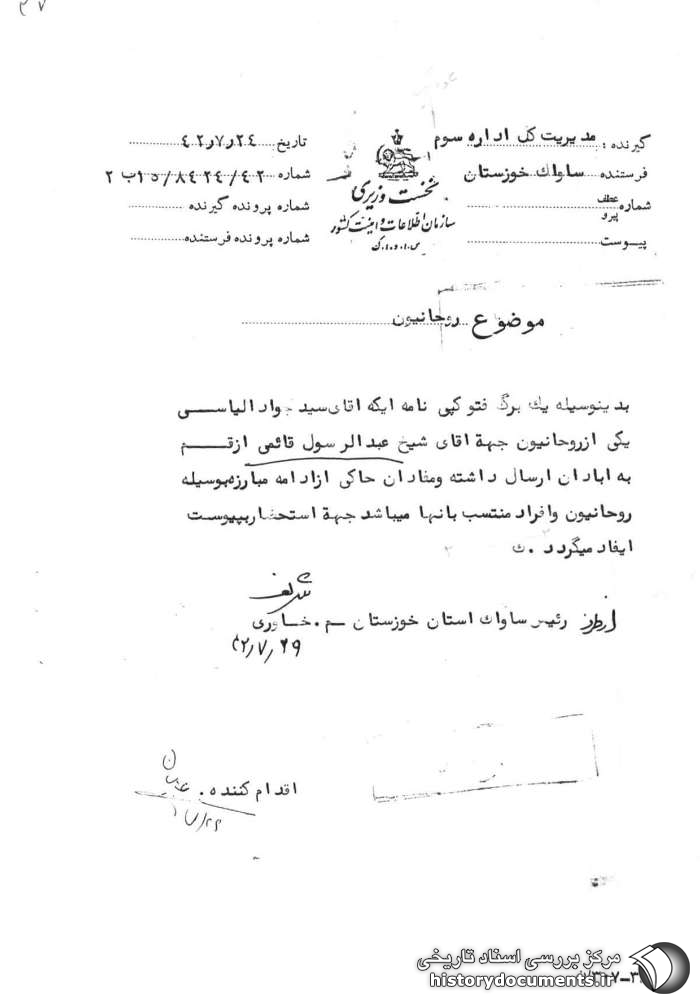 ۳۷
گیرنده : مدیریت کل اداره سوم
فرستنده ساواک خوزستان
شماره عطف پیرو
پیوست
نخست وزیری
سازمان اطلاعات و امنیت کشور
س.ا.و.ا.ک
تاریخ ۴۲٫۷٫۲۴
شماره ۲ب ۱۵/۸۴۲۴/۴۲
شماره پرونده گیرنده
شماره پرونده فرستنده
موضوع روحانیون
بدینوسیله یک برگ فتوکپی نامه ایکه اقای سید جواد الیاسی
یکی ازروحانیون جهة اقای شیخ عبدالرسول قائمی ازقم
به ابادان ارسال داشته ومفادان حاکی ازادامه مبارزه‌بوسیله
روحانیون وافراد منتسب بانها میباشد جهة استحضاربپیوست
ایفاد میگردد .ک
از طرف رئیس ساواک استان خوزستان م. خاوری
۴۲٫۷٫۲۹
اقدام کننده .
۷/۲۶
مرکز بررسی اسناد تاریخی
historydocuments.ir